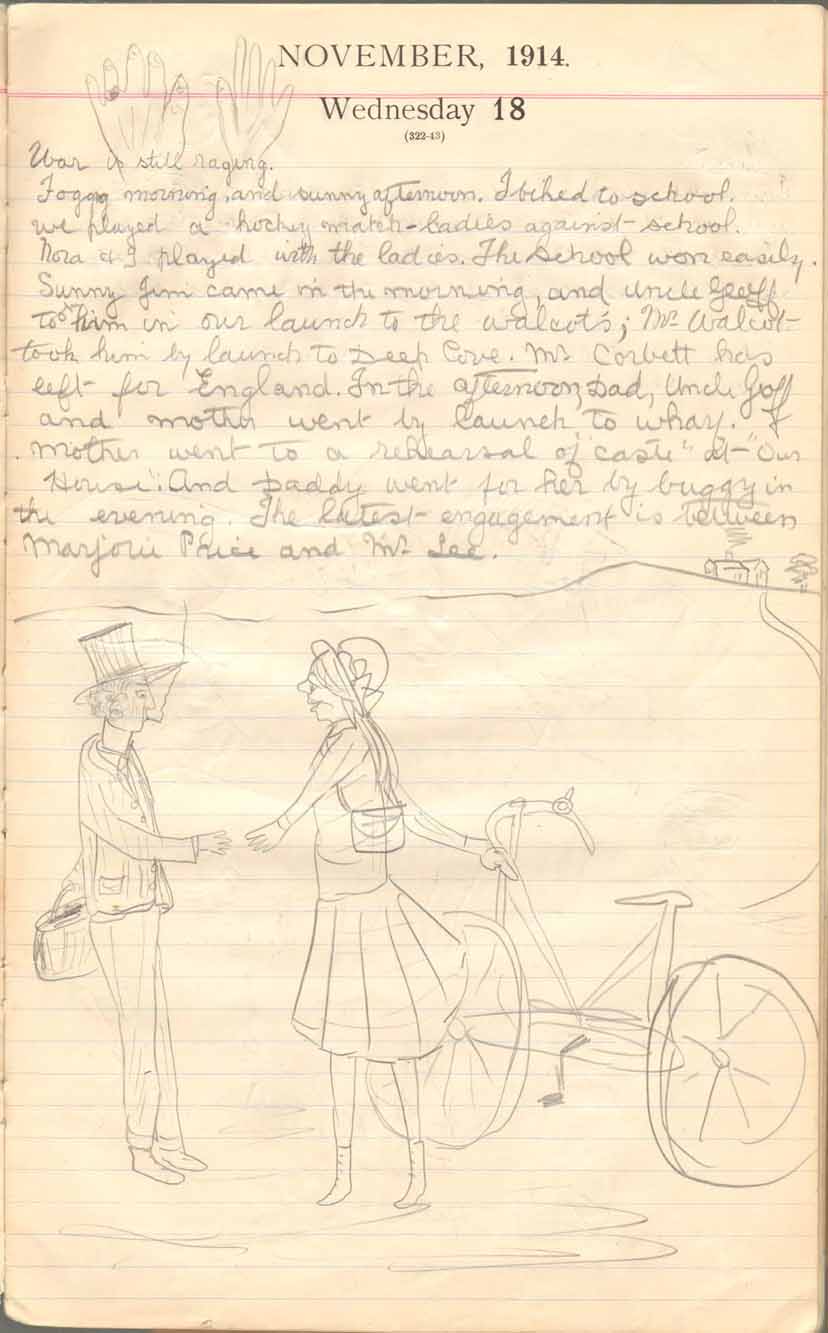 NOVEMBER, 1914.
Wednesday 18
(322-43)
War is still raging.
Foggy morning, and sunny afternoon. I biked to school.
we played a hockey match - ladies against school.
Nora & I played with the ladies. The school won easily.
Sunny Jim came in the morning, and Uncle Geoff
to him in our launch to the Walcots; Mr Walcot
took him by launch to Deep Cove. Mr Corbett has
left for England. In the afternoon, Dad, Uncle Goff
and mother went by launch to
Mother went to a rehearsal of "caste" at "Our
House". And Daddy went for her by buggy in
the evening. The latest engagement is between
Marjorie Price and Mr Lee.